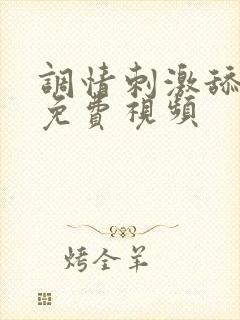 調情刺激舔
免費視頻
烤全羊